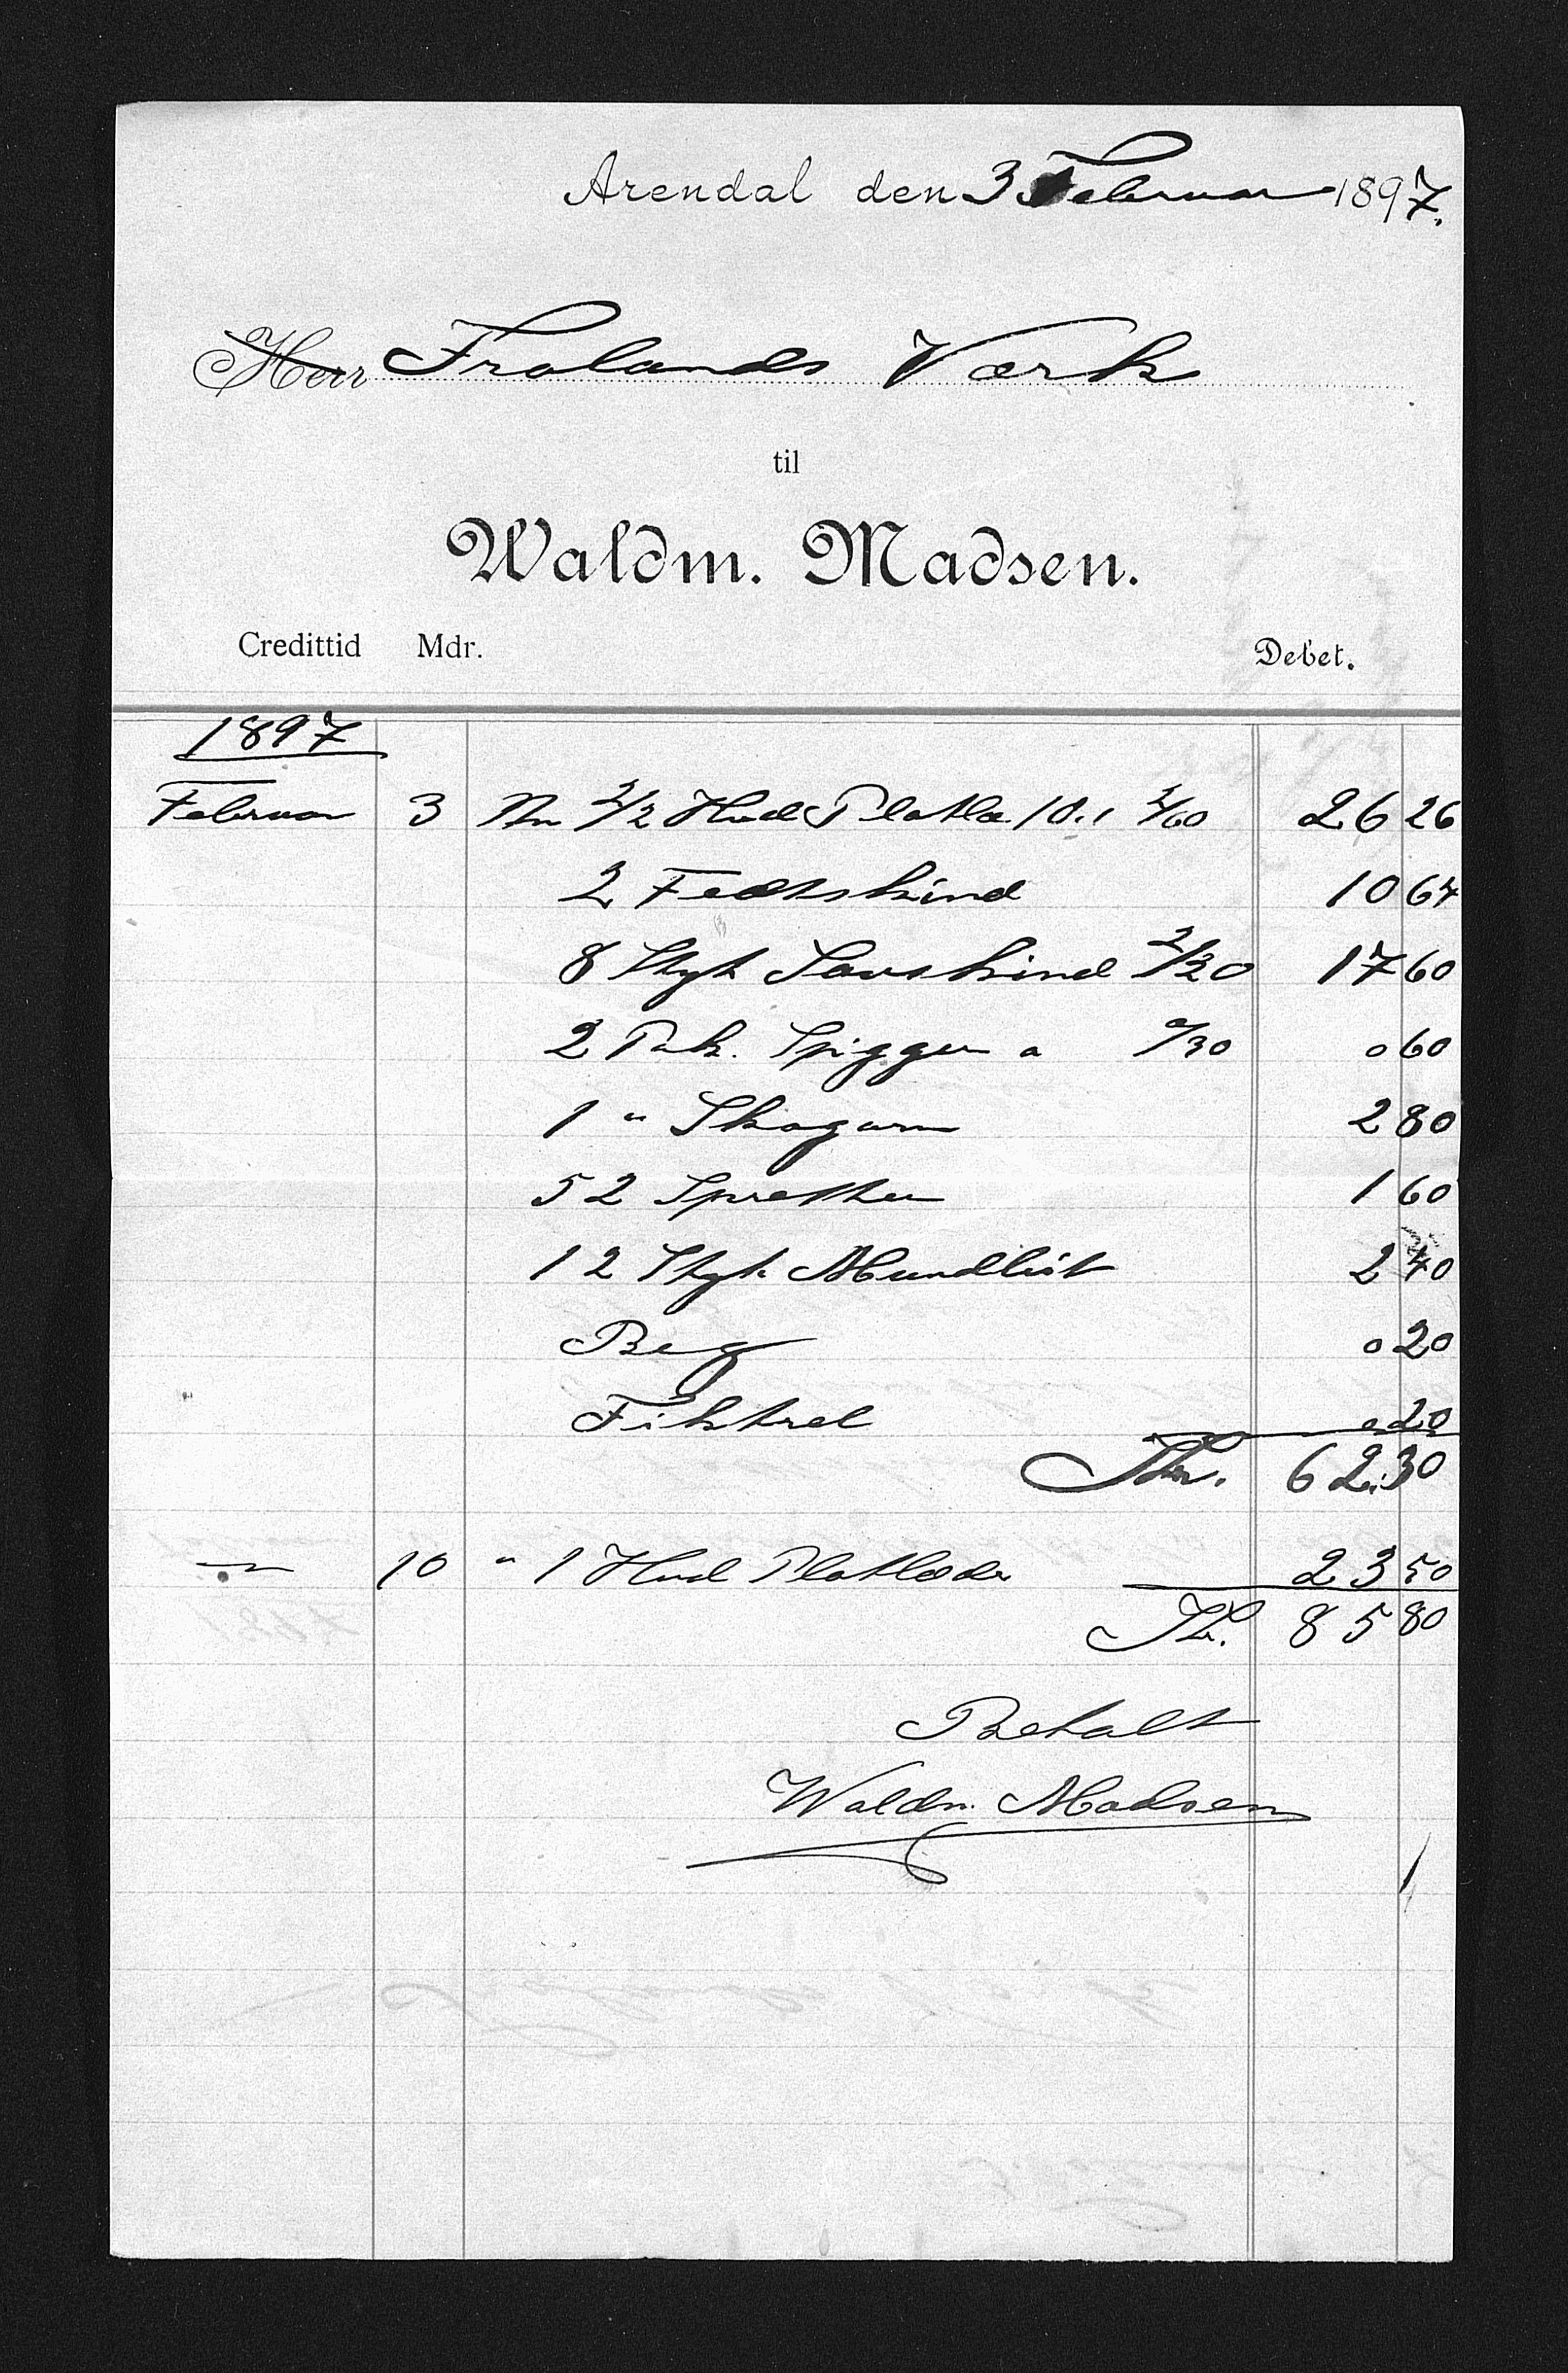 Arendal den 3 Februar 1897.
Herr Frolands Værk
til
Waldm. Madsen.
Credittid Mdr. Debet.
1897
Februar 3 2/2 Hud 10.1 2/60 26 26
2 Fedtskind 10 64
8 Styk Saueskind 2/20 17 60
2 Pak. Spigger a 0/30 0 60
1 " Skogarn 2 80
52 1 60
12 Styk 2 40
Beg 0 20
0 20
Kr. 62.30
10 " 1 Hud Platlæder 23 50
Kr. 85 80
Betalt
Waldm. Madsen